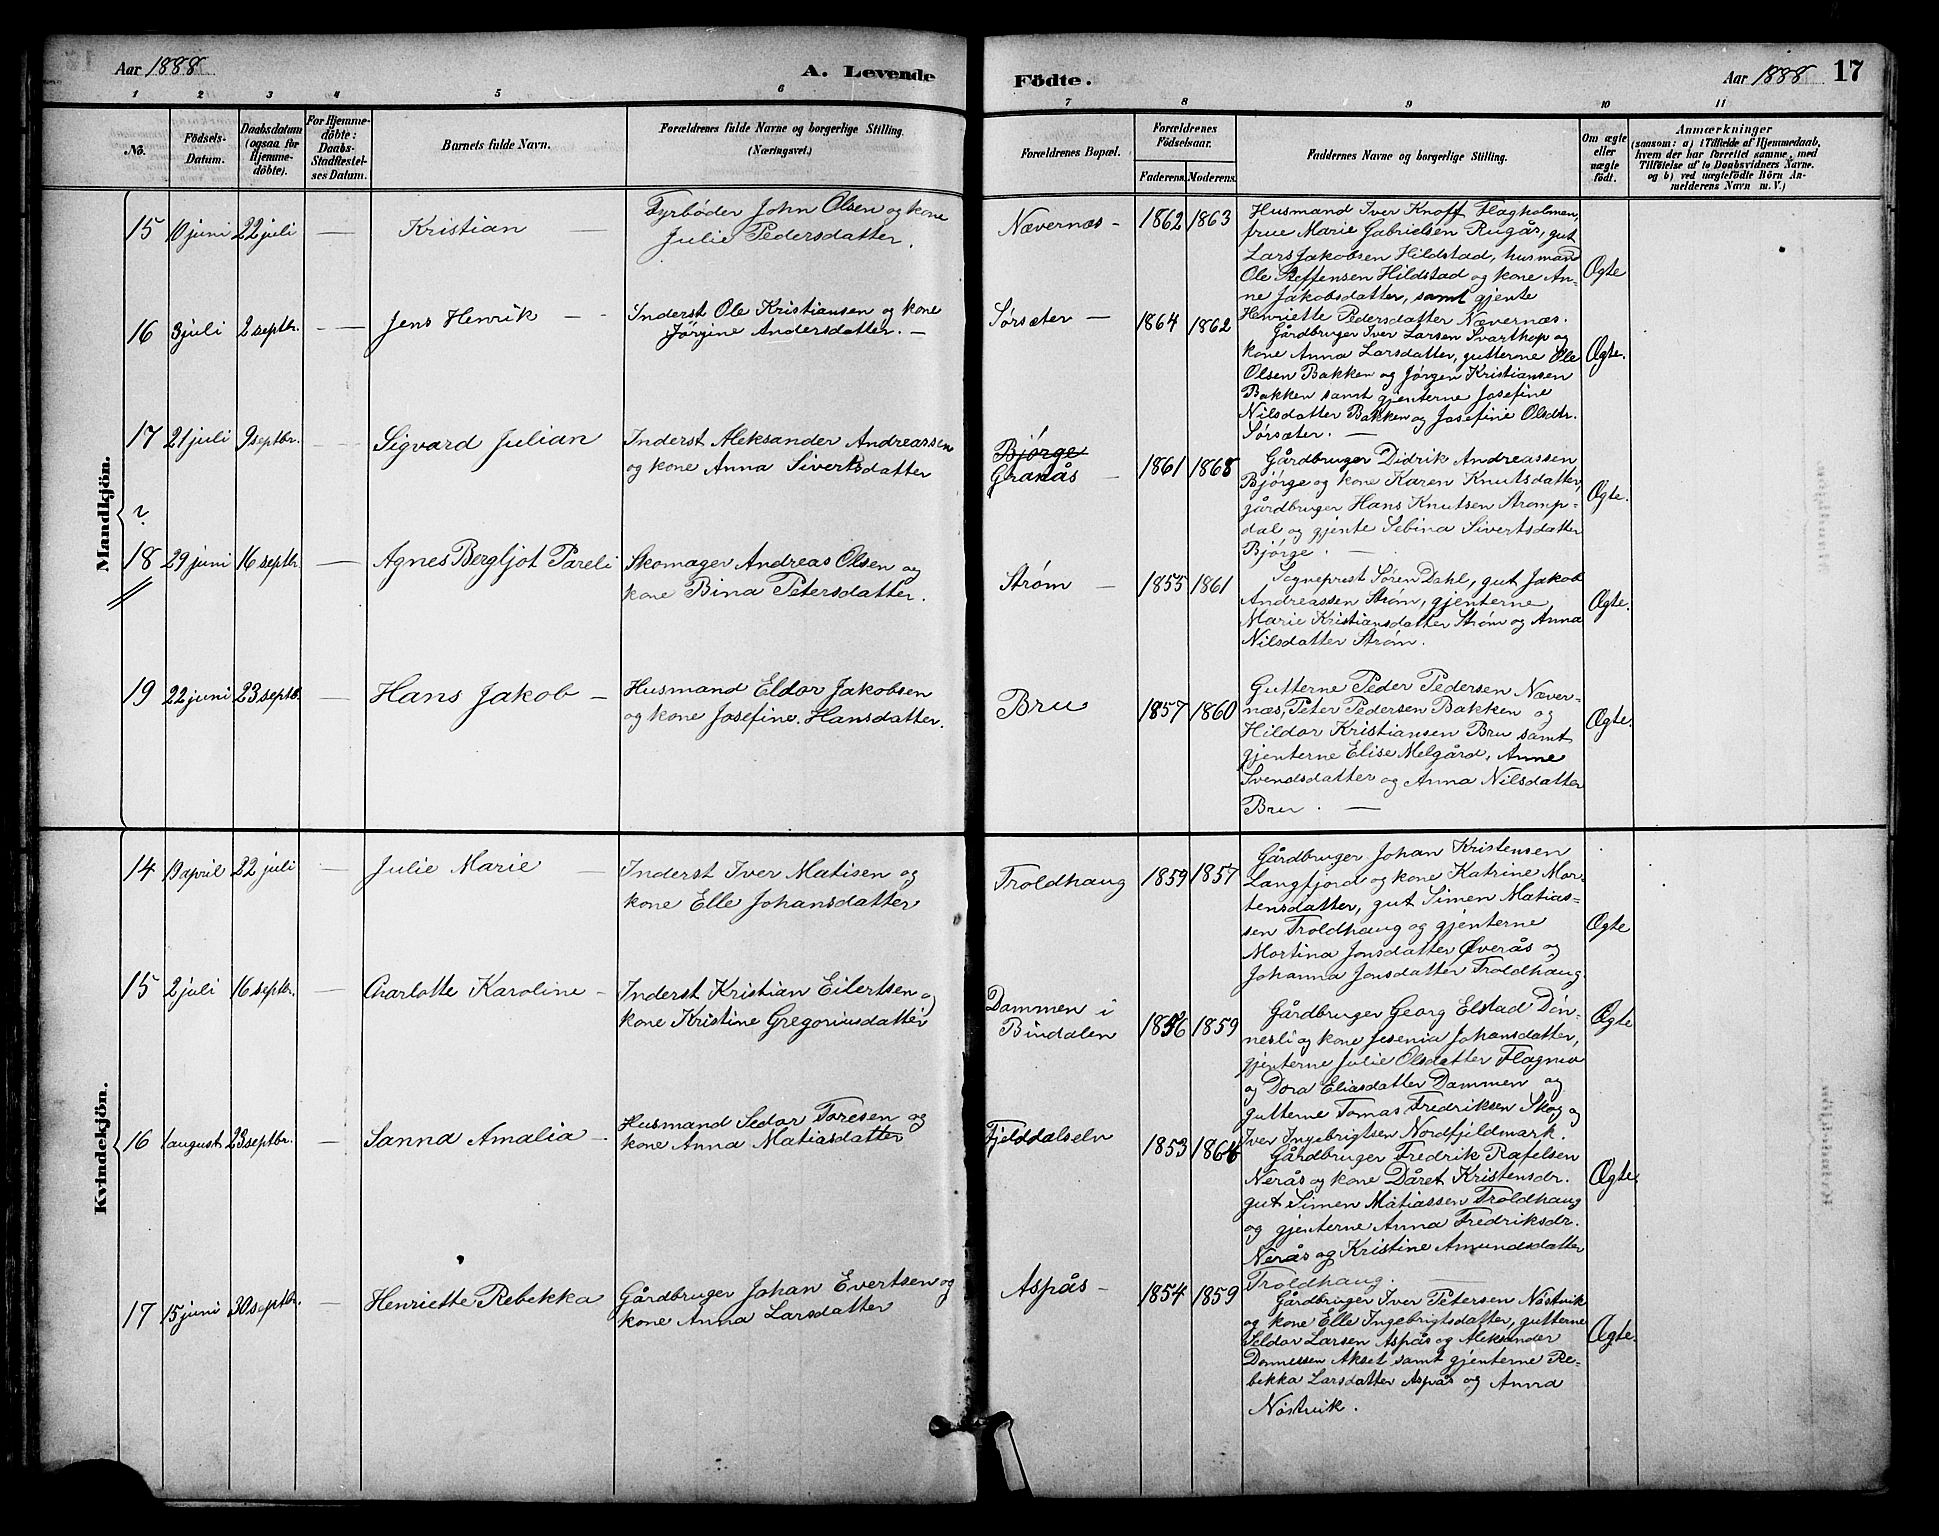 Aar 1888
A. Levende
Födte.
Aar 1888
17
1 2 3 4 5 6 7 8 9 10 11
No.
Födsels-
Datum.
Daabsdatum
(ogsaa for
Hjemme-
döbte).
For Hjemme-
döbte:
Daabs-
Stadfæstel-
ses Datum.
Barnets fulde Navn.
Forældrenes fulde Navne og borgerlige Stilling.
(Næringsvei.)
Forældrenes Bopæl.
Forældrenes
Födselsaar.
Faderens. Moderens.
Faddernes Navne og borgerlige Stilling.
Om ægte
eller
uægte
födt.
Anmærkninger
(saasom: a) i Tilfælde af Hjemmedaab,
hvem der har forrettet samme, med
Tilföielse af to Daabsvidners Navne.
og b) ved uægtefödte Börn An-
melderens Navn m. V.)
Mandkjön.
15 10 juni 22 juli — Kristian —
Fyrbøder John Olsen og kone
Julie Pedersdatter.
Nævernæs - 1862 1863
Husmand Iver Knoff Flagholmen,
frue Marie Gabrielsen Rugås, gut
Lars Jakobsen Hildstad, husmand
Ole Steffensen Hildstad og kone An-
ne Jakobsdatter, samt gjente
Henriette Pedersdatter Nævernæs.
Ægte
16 3 juli 2 septbr. — Jens Henrik —
Inderst Ole Kristiansen og kone
Jørgine Andersdatter. —
Sørsæter — 1864 1862
Gårdbruger Iver Larsen Svarthop og
kone Anna Larsdatter, gutterne Ole
Olsen Bakken og Jørgen Kristiansen
Bakken samt gjenterne Josefine
Nilsdatter Bakken og Josefine Olsdtr.
Sørsæter. —
Ægte.
17 21 juli 9 septbr. — Sigvard Julian
Inderst Aleksander Andreassen
og kone Anna Sivertsdatter
Bjørge
Granås — 1861 1868
Gårdbruger Didrik Andreassen
Bjørge og kone Karen Knutsdatter,
gårdbruger Hans Knutsen Stromp-
dal og gjente Sebina Sivertsdatter
Bjørge. —
Ægte.
?
18 29 juni 16 septbr. — Agnes Bergljot Pareli
Skomager Andreas Olsen og
kone Bina Petersdatter.
Strøm — 1855 1861
Sogneprest Søren Dahl, gut Jakob
Andreassen Strøm, gjenterne
Marie Kristiansdatter Strøm og Anna
Nilsdatter Strøm.
Ægte.
19 22 juni 23 septb. — Hans Jakob —
Husmand Eldor Jakobsen
og kone Josefine Hansdatter.
Bru 1857 1860
Gutterne Peder Pedersen Næver-
næs, Peter Pedersen Bakken og
Hildor Kristiansen Bru samt
gjenterne Elise Melgård, Anne
Svendsdatter og Anna Nilsdatter
Bru. —
Ægte.
Kvindekjön.
14 19 april 22 juli — Julie Marie —
Inderst Iver Matisen og
kone Elle Johansdatter
Troldhaug 1859 1857
Gårdbruger Johan Kristensen
Langfjord og kone Katrine Mor-
tensdatter, gut Simen Matias-
sen Troldhaug og gjenterne
Mortina Jonsdatter Øverås og
Johanna Jonsdatter Troldhaug.
Ægte
15 2 juli 16 septbr. — Charlotte Karoline —
Inderst Kristian Eilertsen og
kone Kristine Gregoriusdatter
Dammen i
Bindalen 1856 1859
Gårdbruger Georg Elstad Døn-
nesli og kone Jesenia Johansdatter,
gjenterne Julie Olsdatter Flagmo
og Dora Eliasdatter Dammen og
gutterne Tomas Fredriksen Skog og
Iver Ingebrigtsen Nordfjeldmark.
Ægte
16 1 august 23 septbr. — Sanna Amalia —
Husmand Sedor Toresen og
kone Anna Matiasdatter
Fjelddalselv 1853 1864
Gårdbruger Fredrik Rafelsen
Nerås og kone Dåret Kristensdr.
gut Simen Matiassen Troldhaug
og gjenterne Anna Fredriksdr.
Nerås og Kristine Amundsdatter
Troldhaug. —
Ægte.
17 15 juni 30 septbr. — Henriette Rebekka
Gårdbruger Johan Evertsen og
kone Anna Larsdatter
Aspås — 1854 1859
Gårdbruger Iver Petersen Nøstvik
og kone Elle Ingebrigtsdatter, gutterne
Seldor Larsen Aspås og Aleksander
Donnessen Akset samt gjenterne Re-
bekka Larsdatter Aspås og Anna
Nøstvik.
Ægte.